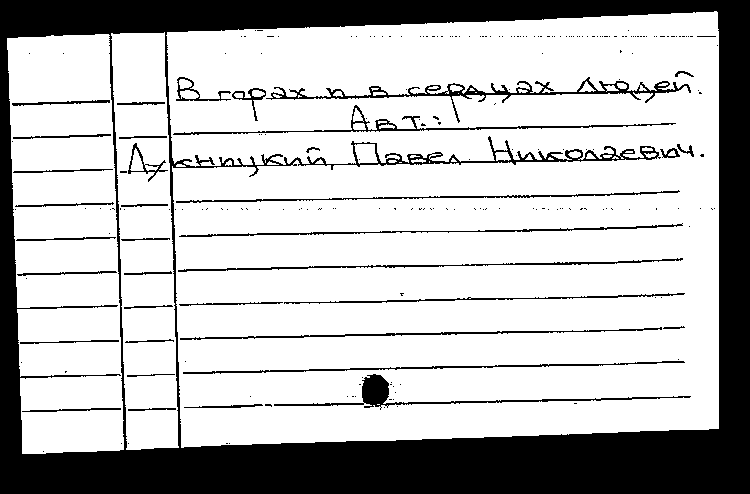 В горах и в сердцах людей.
Авт.:
Лукницкий, Павел Николаевич.